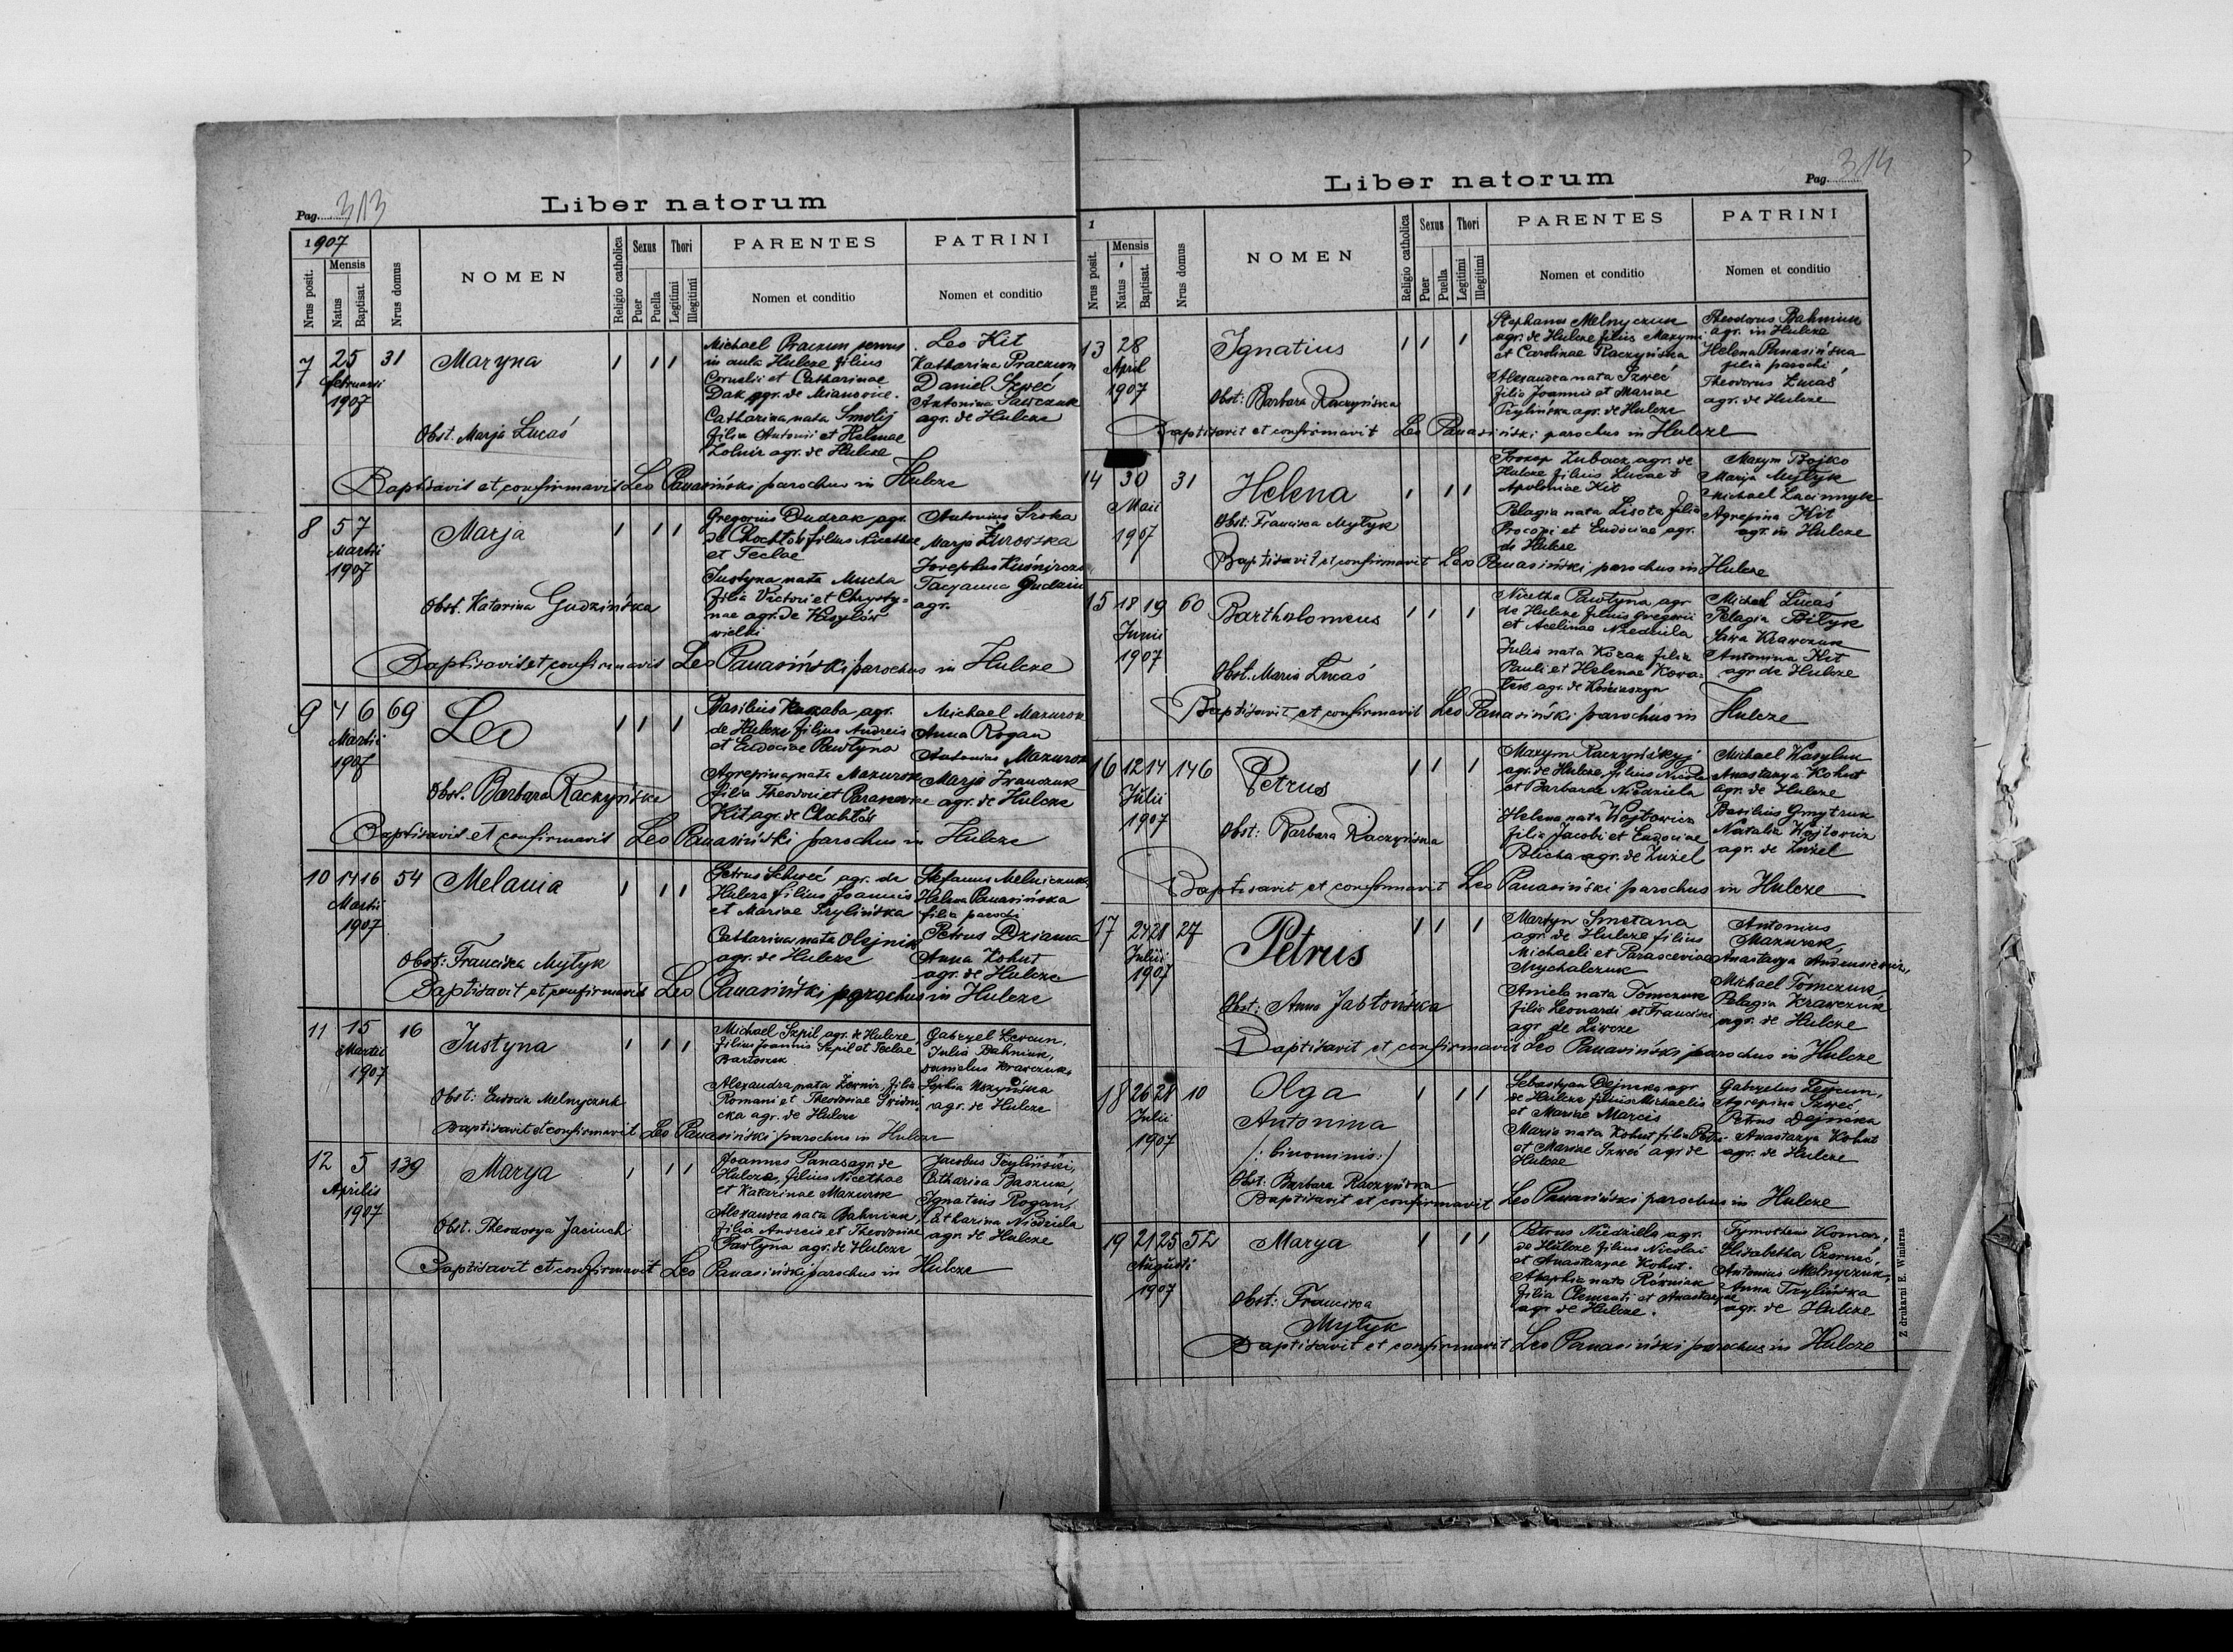 Pag. 313
Liber natorum
1907
Nrus posit.
Mensis
Natus
Baptisat.
Nrus domus
NOMEN
Religio catholica
Sexus
Puer
Puella
Thori
Legitimi
Illegitimi
PARENTES
Nomen et conditio
PATRINI
Nomen et conditio
7 25 31 Maryna
februarii
1907
Obst. Marja Lucaś
Michael Praczun servus
in aula Hulcze filius
Cornelii et Catharinae
Dak agr. de Mianowice.
Catharina nata Smolij
filia Antonii et Helenae
Żolnir agr. de Hulcze
Leo Kit
Katharina Praczun
Daniel Szweć
Antonina Sawczuk
agr. de Hulcze
Baptisavit et confirmavit Leo Panasiński parochus in Hulcze
8 5 7 Marja
Martii
1907
Obst. Katarina Gudzińska
Gregorius Dudrak agr.
de Chochłów filius Nicethae
et Teclae
Justyna nata Mucha
filia Victori et Chrysty=
nae agr. de Wasylów
wielki
Antonius Sroka
Marja Żurowska
Josephus
Tacyanna Gudzin
agr.
Baptisavit et confirmavit Leo Panasiński parochus in Hulcze
9 4 6 69 Leo
Martii
1907
Obst. Barbara Raczyńska
Basilius Kaszaba agr.
de Hulcze filius Andreis
et Eudociae Pawłyna
Agrepina nata Mazurok
filia Theodori et Parasceviae
Kit agr. de Chochłów
Michael Mazurok
Anna Rogan
Antonius Mazurok
Marja Iwanczuk
agr. de Hulcze
Baptisavit et confirmavit Leo Panasiński parochus in Hulcze
10 14 16 54 Melania
Martii
1907
Obst: Franciska Mytyk
Petrus Schweć agr. de
Hulcze filius Joannis
et Mariae Trylińska
Catharina nata Olejnik
agr. de Hulcze
Stefanus Melniczuk
Helena Panasińska
filia parochi
Petrus Dziama
Anna Kohut
agr. de Hulcze
Baptisavit et confirmavit Leo Panasiński parochus in Hulcze
11 15 16 Justyna
Martii
1907
Obst: Eudocia Melnyczuk
Michael Szpil agr. de Hulcze,
filius Joannis Szpil et Teclae
Bartoszek
Alexandra nata Żownir, filia
Romani et Theodosiae
cka agr. de Hulcze
Gabryel Lewcun,
Julia Bahniuk,
Danielus Krawczuk,
Sophia
agr. de Hulcze
Baptisavit et confirmavit Leo Panasiński parochus in Hulcze
12 5 139 Marya
Aprilis
1907
Obst. Theodosya Jaciuch
Joannes Panas agr. de
Hulcze, filius Nicethae
et Katarinae Mazurok
Alexandra nata Bahniuk,
filia Andreis et Theodosiae
Pawłyna agr. de Hulcze
Jacobus Trylinski,
Catharina Baszuk,
Ignatius Rogan,
Catharina Niedziela
agr. de Hulcze
Baptisavit et confirmavit Leo Panasiński parochus in Hulcze
Liber natorum
Pag. 314
1
Nrus posit.
Mensis
Natus
Baptisat.
Nrus domus
NOMEN
Religio catholica
Sexus
Puer
Puella
Thori
Legitimi
Illegitimi
PARENTES
Nomen et conditio
PATRINI
Nomen et conditio
13 28 Ignatius
April
1907
Obst: Barbara Raczyńska
Stephanus Melnyczuk
agr. de Hulcze filius Maxymi
et Carolinae Raczyńska
Alexandra nata Szweć
filia Joannis et Mariae
Trylińska agr. de Hulcze
Theodorus Bahniuk
agr. in Hulcze
Helena Panasińska
filia parochi
Theodorus Lucaś
agr. de Hulcze
Baptisavit et confirmavit Leo Panasiński parochus in Hulcze
14 30 31 Helena
Maii
1907
Obst: Franciska Mytyk
Prokop Zubacz agr. de
Hulcze filius Lucae et
Apoloniae Kit
Pelagia nata Lisota filia
Procopi et Eudociae agr.
de Hulcze
Maxym Bojko
Marja Mytyk
Michael
Agrepina Kit
agr. in Hulcze
Baptisavit et confirmavit Leo Panasiński parochus in Hulcze
15 18 19 60 Bartholomeus
Junii
1907
Obst. Maria Lucaś
Nicetha Pawłyna agr
de Hulcze filius Gregorii
et Acelinae Niedziela
Julia nata Kozak filia
Pauli et Helenae Kowa=
agr. de Kościaszyn
Michael Lucaś
Pelagia Bityk
Sawa Krawczuk
Antonina Kit
agr de Hulcze
Baptisavit et confirmavit Leo Panasiński parochus in Hulcze
16 12 14 146 Petrus
Julii
1907
Obst: Barbara Raczyńska
Maxym Raczyńskyj
agr. de Hulcze, filius Nicolai
et Barbarae Niedziela
Helena nata Wójtowicz
filia Jacobi et Eudociae
Policha agr. de Żużel
Michael Wasyluk
Anastazya Kohut
agr. de Hulcze
Basilius Gmytruk
Natalia Wójtowicz
agr. de Żużel
Baptisavit et confirmavit Leo Panasiński parochus in Hulcze
17 27 28 27 Petrus
Julii
1907
Obst: Anna Jabłońska
Martyn Smetana
agr. de Hulcze filius
Michaeli et Parasceviae
Mychalczuk
Aniela nata Tomczuk
filia Leonardi et Francisci
agr de Liwcze
Antonius
Mazurek,
Anastazya Andrusiewicz,
Michael Tomczuk,
Pelagia Krawczuk
agr. de Hulcze
Baptisavit et confirmavit Leo Panasiński parochus in Hulcze
18 26 28 10 Olga
Julii Antonina
1907 /: binominis :/
Obst: Barbara Raczyńska
Sebastyan Dejneka agr
de Hulcze filius Michaelis
et Mariae Marcis
Maria nata Kohut filia Petri
et Mariae Szweć agr de
Hulcze
Gabryelus Lewcun,
Agrepina Szweć,
Petrus Dejneka
Anastazya Kohut
agr. de Hulcze
Baptisavit et confirmavit Leo Panasiński parochus in Hulcze
19 21 25 52 Marya
Augusti
1907
Obst: Franciska
Mytyk
Petrus Niedziella agr.
de Hulcze filius Nicolai
et Anastazyae Kohut.
Ahaphia nata Rózniak
filia Clementi et Anastazyae
agr de Hulcze.
Tymotheus Komar,
Elisabetha
Antonius Melnyczuk,
Anna Trylińska
agr. de Hulcze
Baptisavit et confirmavit Leo Panasiński parochus in Hulcze
Z drukarni E. Winiarza